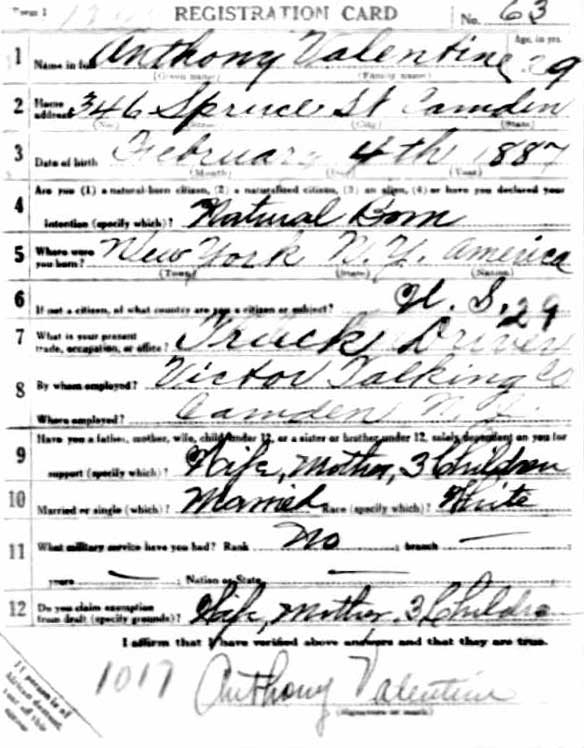 Form 1
REGISTRATION CARD
No. 63
1 Name in full Anthony Valentine Age, in yrs. 29
(Given name) (Family name)
2 Home address 346 Spruce St Camden
(No.) (City) (State)
3 Date of birth February 4th 1887
(Month) (Day) (Year)
Are you (1) a natural-born citizen, (2) a naturalized citizen, (3) an alien, (4) or have you declared your
4 intention (specify which)? Natural Born
5 Where were you born? New York N.Y. America
(Town) (State) (Nation)
6 If not a citizen, of what country are you a citizen or subject? U. S. 29
7 What is your present trade, occupation, or office? Truck Driver
8 By whom employed? Victor Talking Co
Where employed? Camden N.J.
Have you a father, mother, wife, child under 12, or a sister or brother under 12, solely dependent on you for
9 support (specify which)? Wife, Mother, 3 Children
10 Married or single (which)? Married Race (specify which)? White
11 What military service have you had? Rank No ; branch —
years — ; Nation or State —
12 Do you claim exemption from draft (specify grounds)? Wife, Mother, 3 Childre
I affirm that I have verified above answers and that they are true.
1017 Anthony Valentine
(Signature or mark)
If person is of
African descent,
tear off this
corner